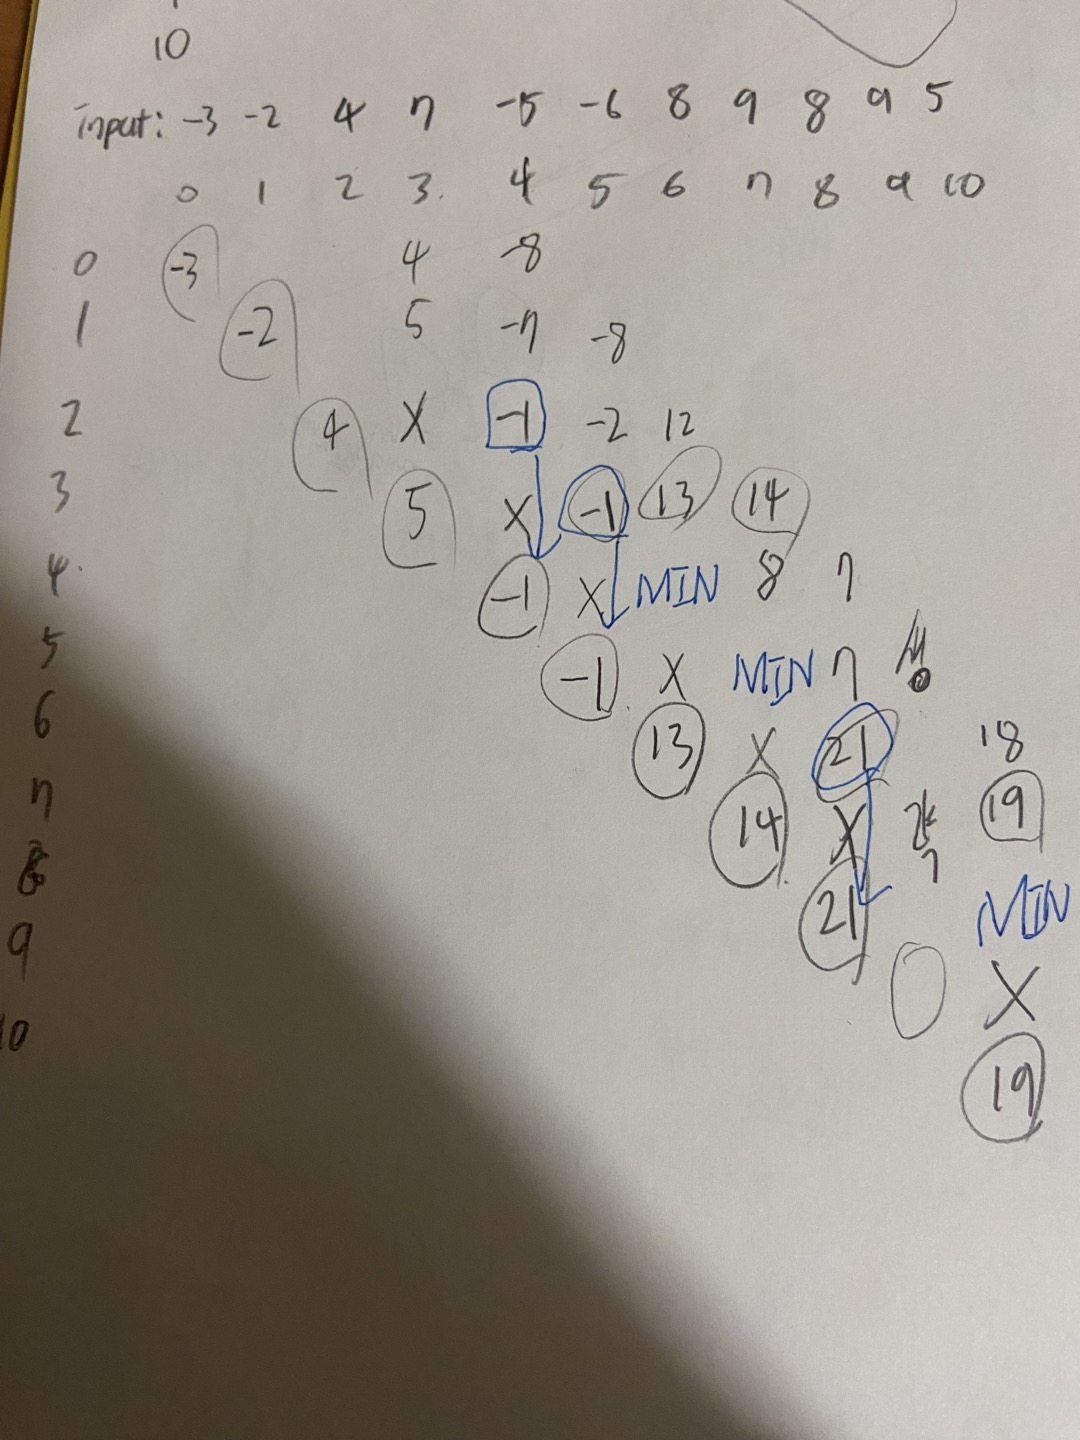 10
input: -3 -2 4 7 -5 -6 8 9 8 9 5
0 1 2 3. 4 5 6 7 8 9 10
0 -3 4 -8
1 -2 5 -7 -8
2 4 X -1 -2 12
3 5 X -1 13 14
4. -1 X MIN 8 7
5 -1 X MIN 7
6 13 X 21 18
7 14 X 19
8 21 MIN
9 X
10 19